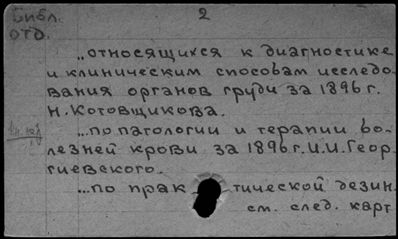 Библ. 2
отд.
„относящихся к диагностике
и клиническим способам исследо-
вания органов груди за 1896 г.
Н. Котовщикова.
...по патологии и терапии бо-
лезней крови за 1896 г. И.И. Геор-
гиевского.
...по практической дезин.
см. след. карт.